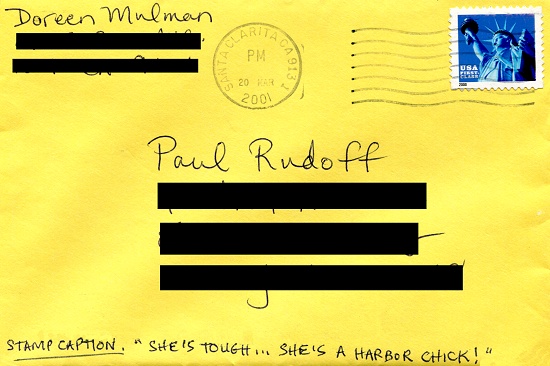 Doreen Mulman
SANTA CLARITA CA 913
PM
20 MAR
2001
USA
FIRST
CLASS
2000
Paul Rudoff
STAMP CAPTION. "SHE'S TOUGH... SHE'S A HARBOR CHICK!"